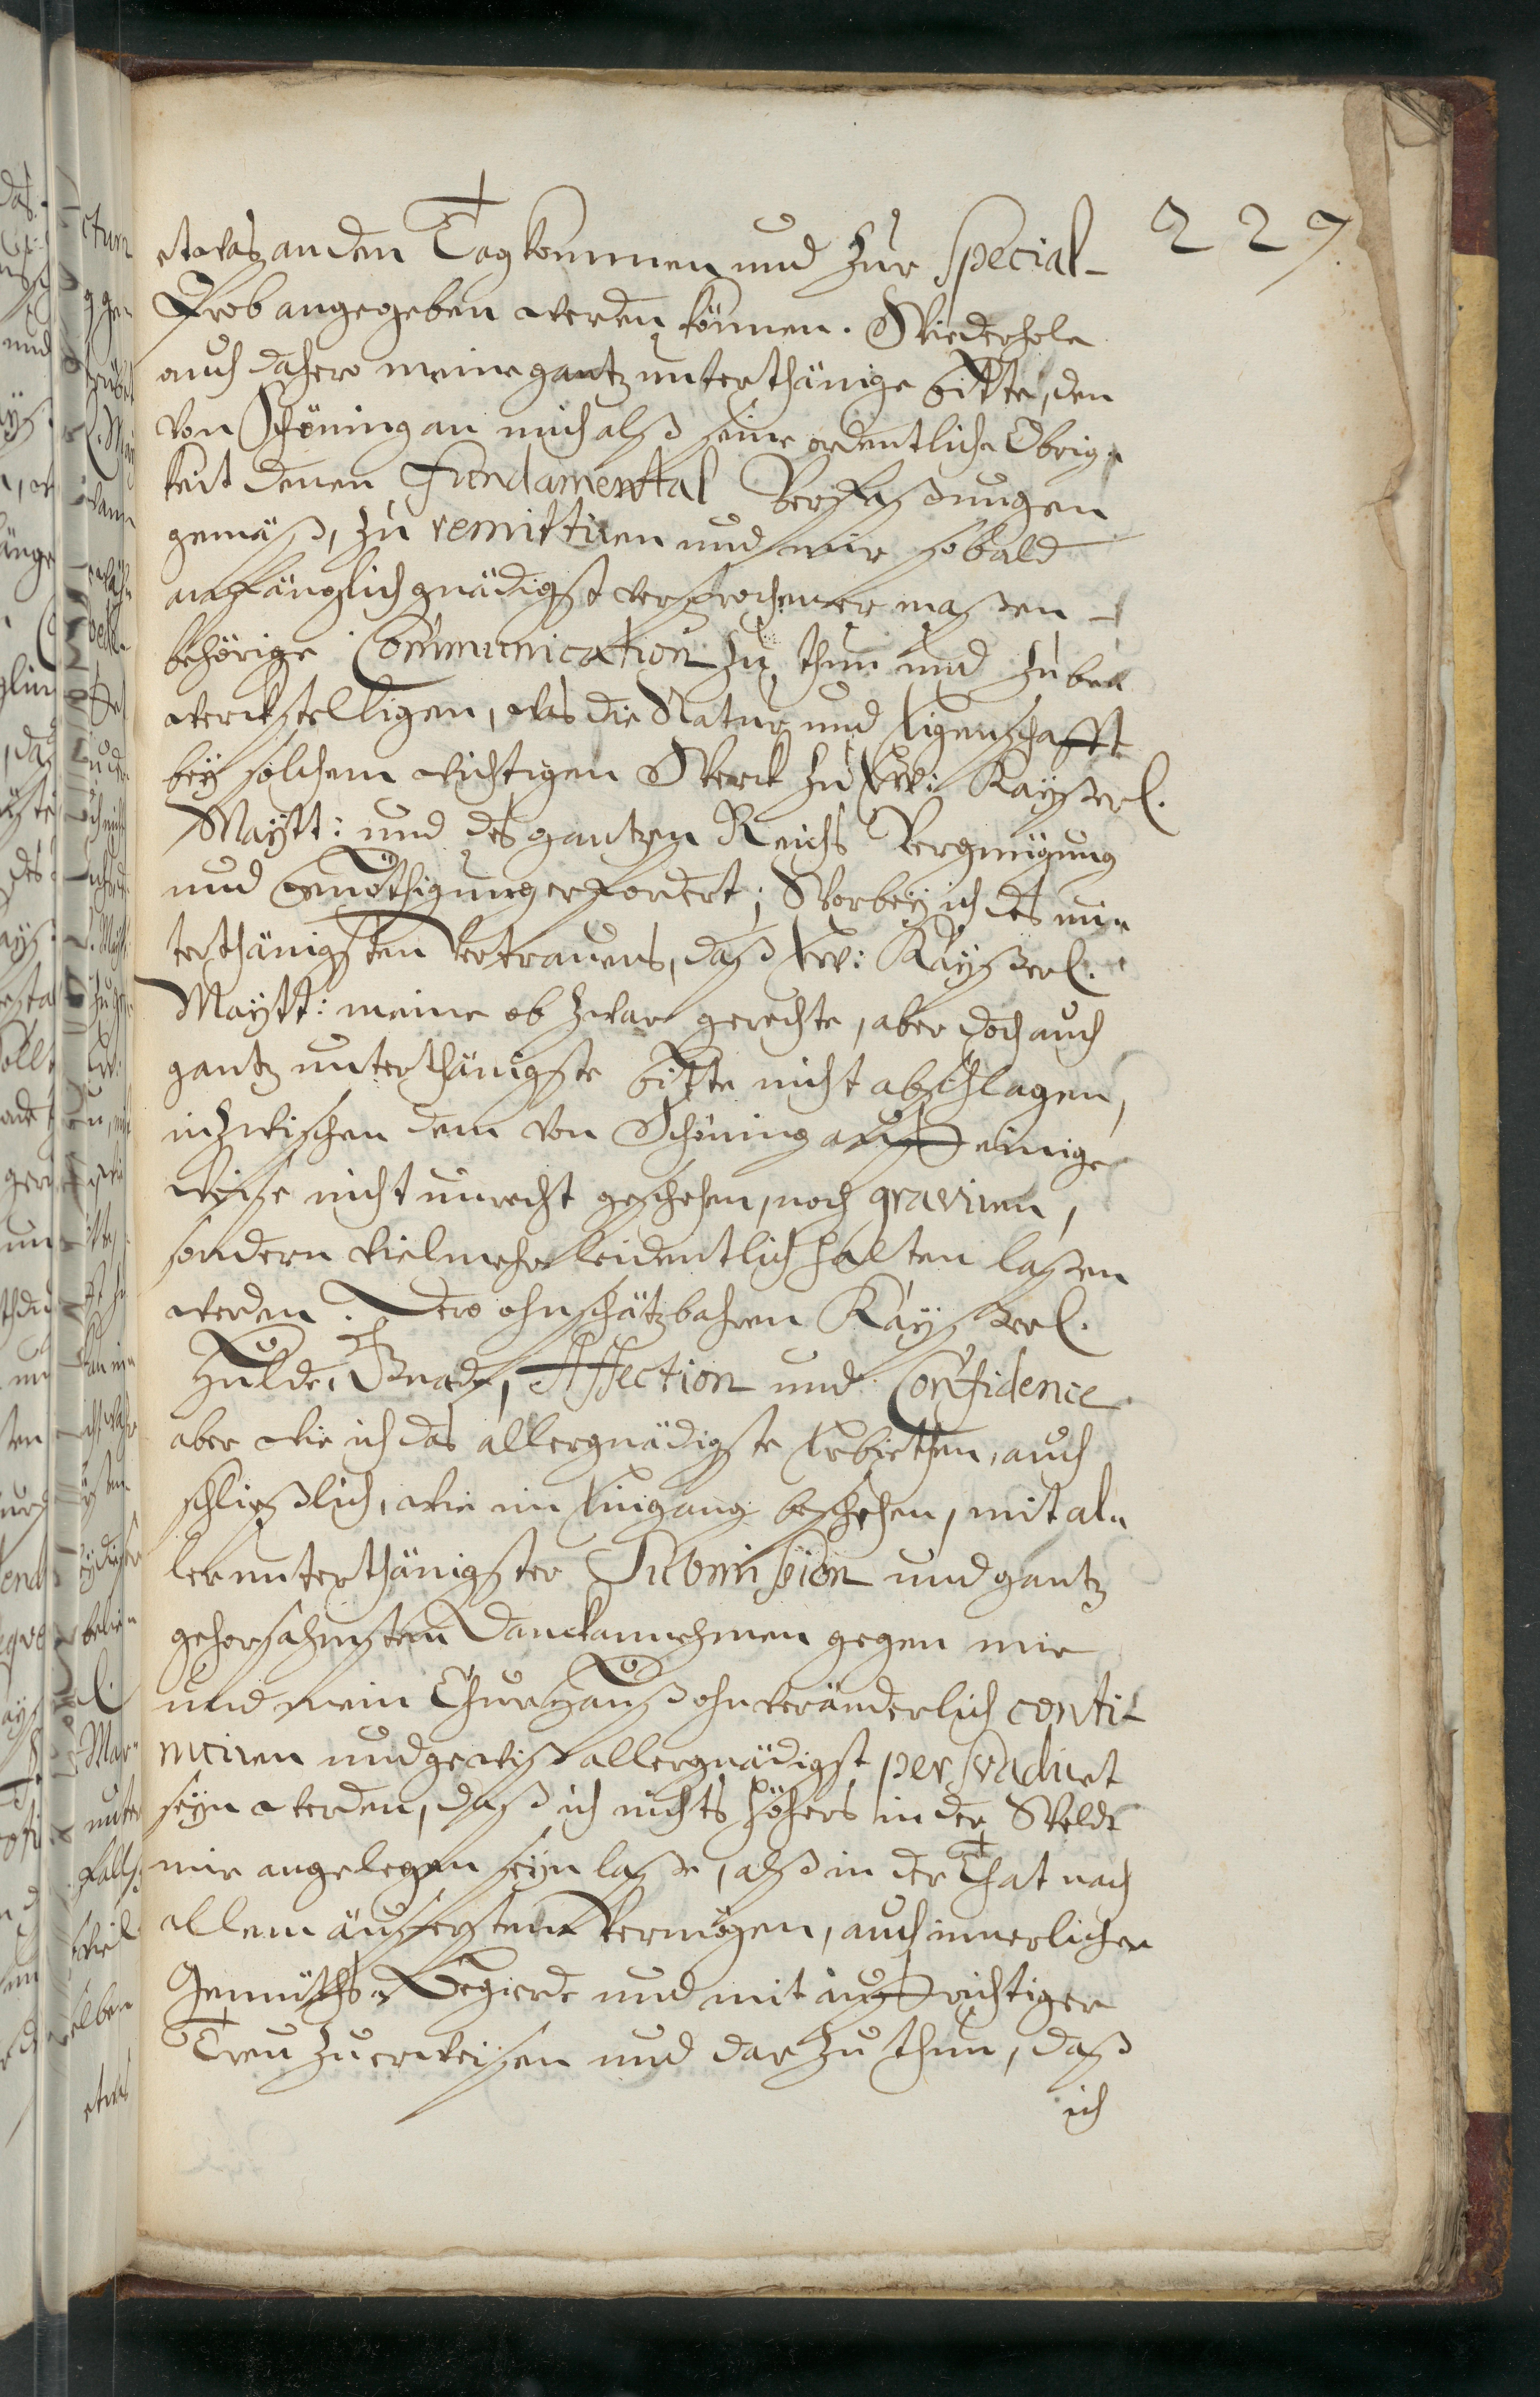 227
etwas an den Tag kommen und zur special-
Prob angegeben werden können. Wiederhole
auch dahero meine gantz unterthänige bitte, den
von Schöning an mich alß seine ordentliche Obrig-
keit denen Fundamental Verfaßungen
gemäß, zu remittiren und mir sobald
anfänglich gnädigst versprochener maßen
behörige Communication zu thun und zu be-
werckstelligen, was die Natur und Eigenschafft
bey solchem wichtigen Werck zu Ew: Kayßerl.
Maytt: und des gantzen Reichs Vergnügung
und erfordert; Worbey ich des un-
terthänigsten Vertrauens, daß Ew: Kayßerl.
Maytt: meine ob zwar gerechte, aber doch auch
gantz unterthänigste bitte nicht abschlagen,
inzwischen dem von Schöning auff einige
weise nicht unrecht geschehen, noch graviren,
sondern vielmehr leidentlich halten laßen
werden. Dero ohnschätzbahren Kayßerl.
Hulde, Gnade, Affection und Confidence
aber wie ich das allergnädigste Erbiethen, auch
schließlich, wie im Eingang beschehen, mit al-
lerunterthänigster Submission und gantz
gehorsahmstem Danckannehmen gegen mir
und mein ChurHauß ohnveränderlich conti-
nuiren und gewiß allergnädigst persvadiret
seyn werden, daß ich nichts höhers in der Weldt
mir angelegen seyn laße, alß in der That nach
allem äusersten Vermögen, auch innerlicher
Gemüths-Begierde und mit auffrichtiger
Treu zu erweisen und darzuthun, daß
ich